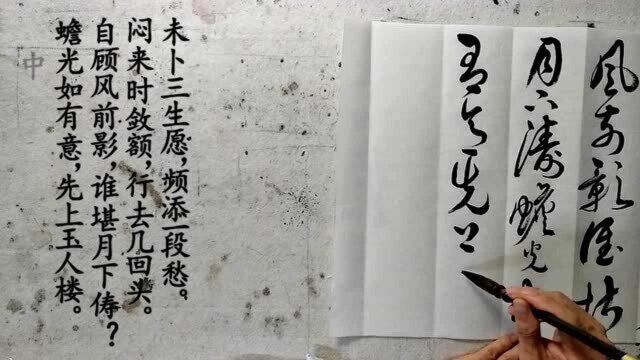 未卜三生愿，频添一段愁。
闷来时敛额，行去几回头。
自顾风前影，谁堪月下俦？
蟾光如有意，先上玉人楼。
中
风前影谁堪
月下俦蟾光
有意先上